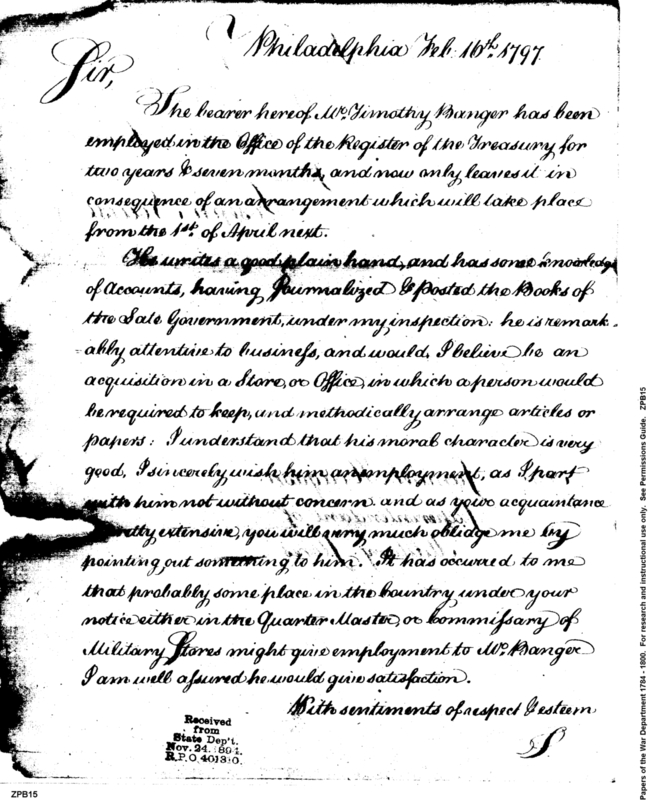 Philadelphia Feb. 16th. 1797.
Sir,
The bearer hereof Mr. Timothy Banger has been
employed in the Office of the Register of the Treasury for
two years & seven months, and now only leaves it in
consequence of an arrangement which will take place
from the 1st. of April next.
He writes a good plain hand, and has some knowledge
of Accounts, having Journalized & Posted the Books of
the Late Government, under my inspection: he is remark-
ably attentive to business, and would, I believe be an
acquisition in a Store, or Office, in which a person would
be required to keep, and methodically arrange articles or
papers: I understand that his moral character is very
good, I sincerely wish him an employment, as I part
with him not without concern and as your acquaintance
pretty extensive, you will very much oblidge me by
pointing out something to him. It has occurred to me
that probably some place in the Country under your
notice either in the Quarter Master, or Commissary of
Military Stores might give employment to Mr. Banger
I am well assured he would give satisfaction.
With sentiments of respect & esteem
Received
from
State Dep't.
Nov. 24. 1894.
R.P.O. 401310.
ZPB15
Papers of the War Department 1784 - 1800. For research and instructional use only. See Permissions Guide. ZPB15